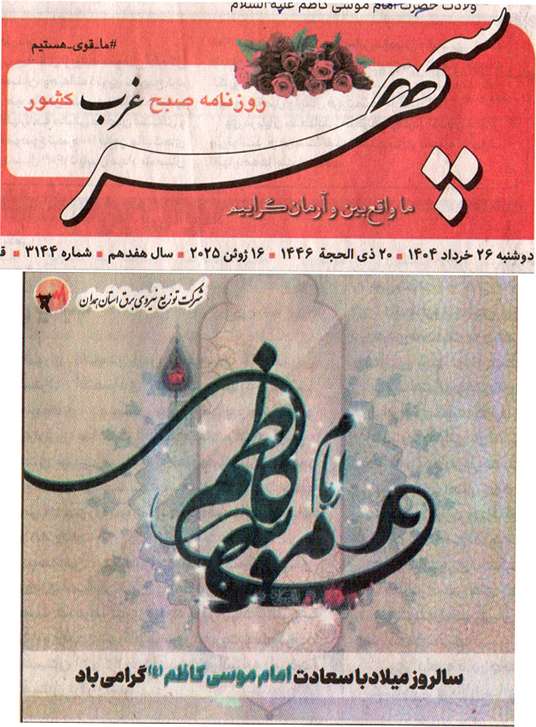 ولادت حضرت امام موسی کاظم علیه السلام
#ما_قوی_هستیم
سپهر
روزنامه صبح غرب کشور
ما واقع بین و آرمان گراییم
دوشنبه ۲۶ خرداد ۱۴۰۴ ■ ۲۰ ذی الحجة ۱۴۴۶ ■ ۱۶ ژوئن ۲۰۲۵ ■ سال هفدهم ■ شماره ۳۱۴۴ ■
شرکت توزیع نیروی برق استان همدان
امام موسی کاظم
سالروز میلاد با سعادت امام موسی کاظم (ع) گرامی باد